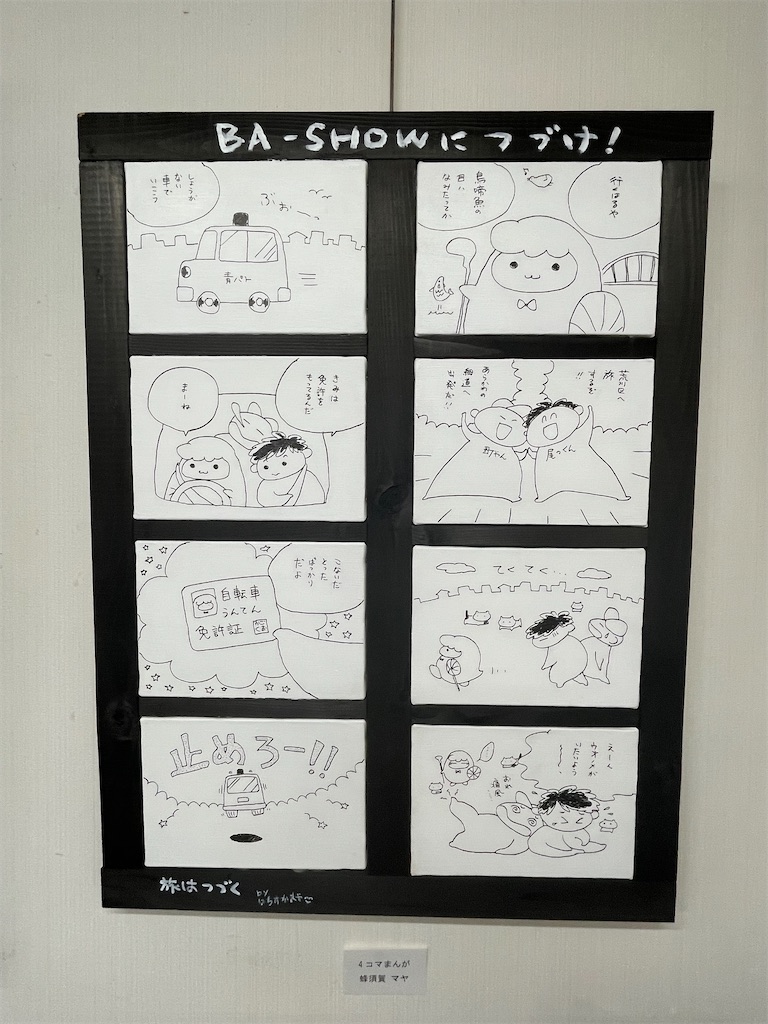 BA-SHOWにつづけ!
行くはるや
鳥啼魚の
目は
なみだってか
荒川区へ
旅
するぞ
!!
あらかわの
細道へ
出発だ!!
尾っくん
町やん
てくてく…
えーん
ウオノメが
いたいよう
おれ
痛風
しょうが
ない
車で
いこう
ぶぉーっ
青パト
きみは
免許を
もってるんだ
まーね
こないだ
とった
ばっかり
だよ
自転車
うんてん
免許証
止めろー!!
旅はつづく
by
4コマまんが
蜂須賀 マヤ